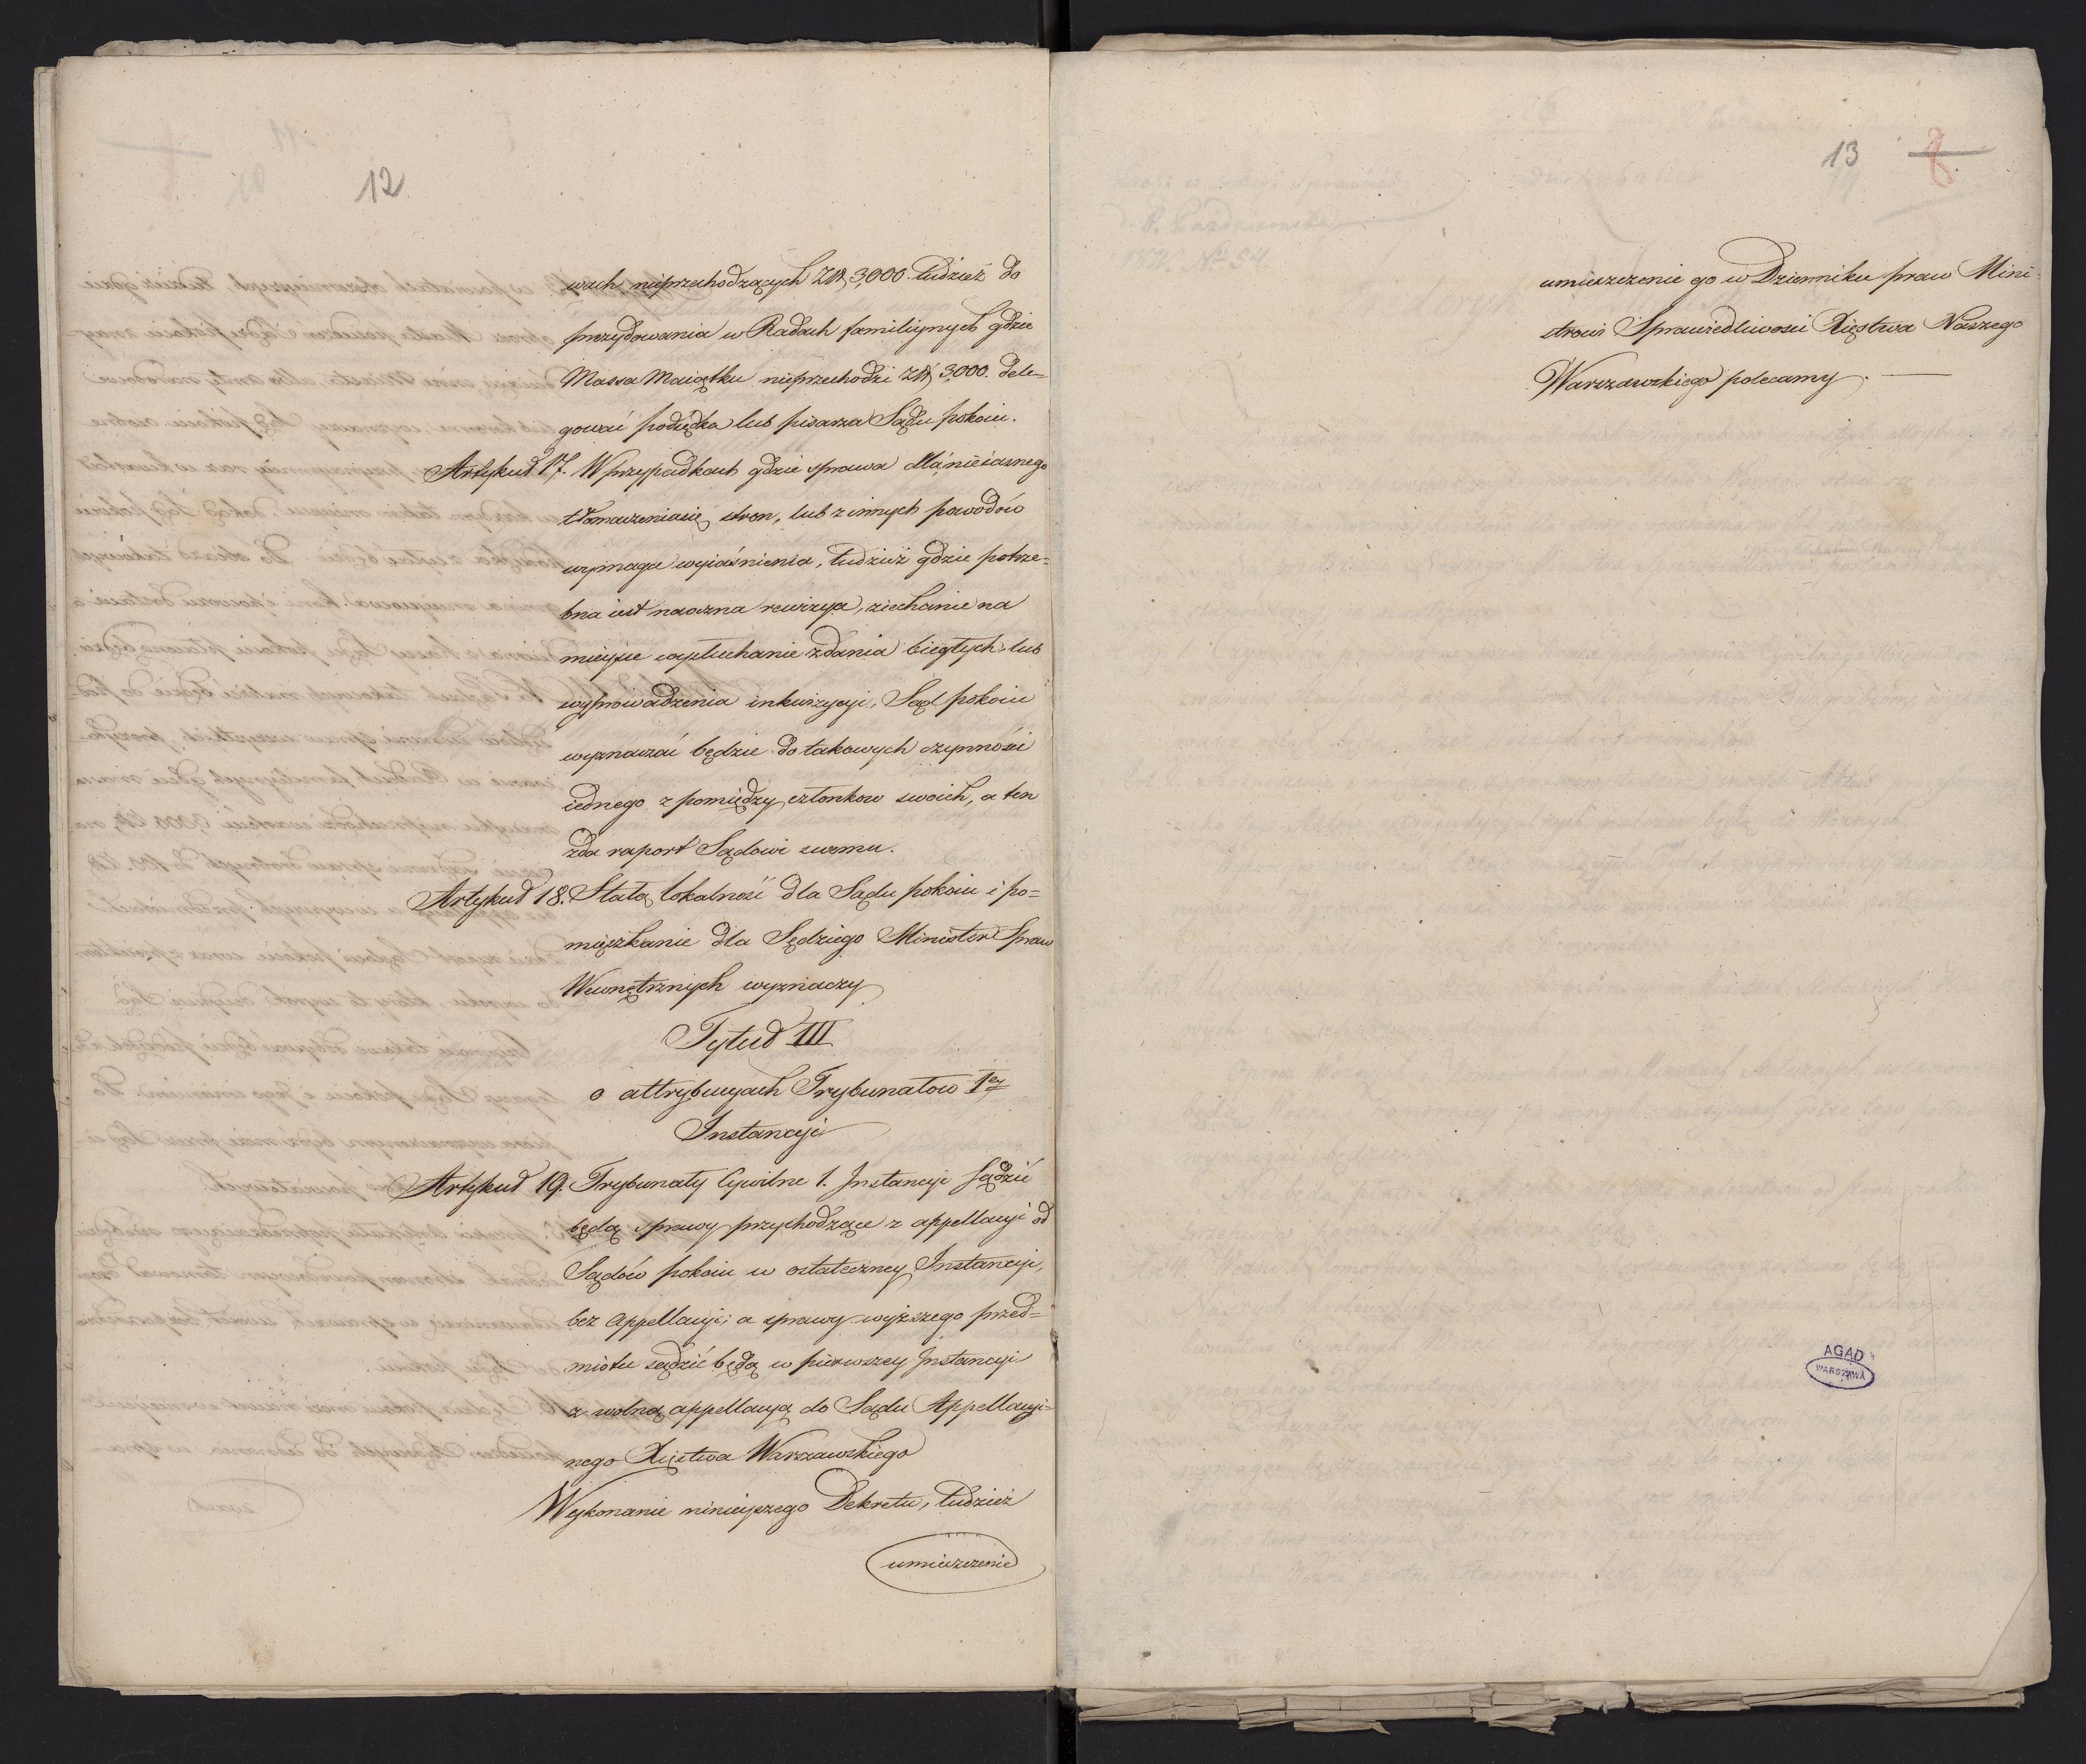 12
wach nieprzechodzących Zł. 3,000. tudzież do
prezydowania w Radach familiynych gdzie
Massa Maiątku nieprzechodzi Zł. 3,000. dele=
gować podsędka lub pisarza Sądu pokoiu.
Artykuł 17. W przypadkach gdzie sprawa dla nieiasnego
tłomaczenia się stron, lub z innych powodów
wymaga wyiaśnienia, tudzież gdzie potrze=
bna iest naoczna rewizya, ziechanie na
mieysce wysłuchanie zdania biegłych lub
wyprowadzenia inkwizycyi, Sąd pokoiu
wyznaczać będzie do takowych czynności
iednego z pomiędzy członkow swoich, a ten
zda raport Sądowi swemu.
Artykuł 18. Stałą lokalność dla Sądu pokoiu i po=
mięszkanie dla Sędziego Minister Spraw
Wewnętrznych wyznaczy
Tytuł III
o attrybucyach Trybunałow 1ey
Instancyi
Artykuł 19. Trybunały Cywilne 1. Instancyi sądzić
będą sprawy przychodzące z appellacyi od
Sądów pokoiu w ostateczney Instancyi,
bez appellacyi; a sprawy wyższego przed=
miotu sądzić będą w pierwszey Instancyi
z wolną appellacyą do Sądu Appellacyi=
nego Xięstwa Warszawskiego
Wykonanie ninieyszego Dekretu, tudzież
umieszczenie
13
8
umieszczenie go w Dzienniku praw Mini
strowi Sprawiedliwosci Xięstwa Naszego
Warszawskiego polecamy.
AGAD
WARSZAWA